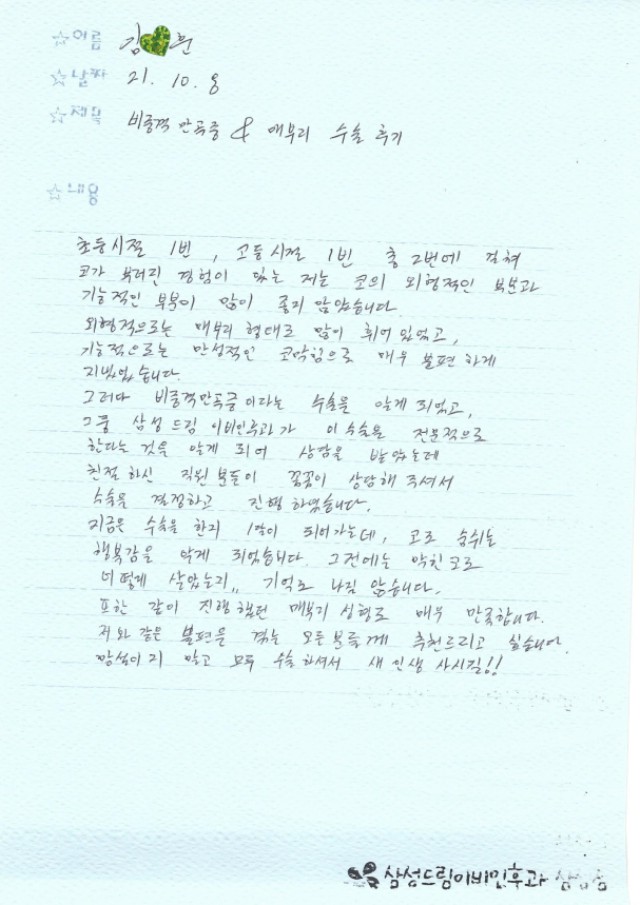 ☆이름 김💚훈
☆날짜 21. 10. 8
☆제목 비중격 만곡증 & 매부리 수술 후기
☆내용
초등시절 1번, 고등시절 1번 총 2번에 걸쳐
코가 부러진 경험이 있는 저는 코의 외형적인 부분과
기능적인 부분이 많이 좋지 않았습니다.
외형적으로는 매부리 형태로 많이 휘어 있었고,
기능적으로는 만성적인 코막힘으로 매우 불편 하게
지냈었습니다.
그러다 비중격만곡증이라는 수술을 알게 되었고,
그중 삼성 드림 이비인후과가 이 수술을 전문적으로
한다는 것을 알게 되어 상담을 받았는데
친절 하신 직원 분들이 꼼꼼이 상담해 주셔서
수술을 결정하고 진행 하였습니다.
지금은 수술을 한지 1달이 되어가는데, 코로 숨쉬는
행복감을 알게 되었습니다. 그전에는 막힌 코로
어떻게 살았는지,, 기억도 나질 않습니다.
또한 같이 진행했던 매부리 성형도 매우 만족합니다.
저와 같은 불편을 겪는 모든 분들께 추천드리고 싶습니다.
망설이지 말고 모두 수술 하셔서 새 인생 사시길!!
삼성드림이비인후과